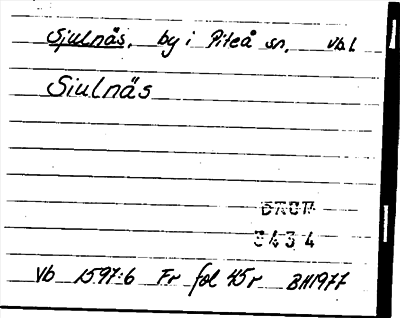 Sjulnäs, by i Piteå sn, Vbl
Siulnäs
3434
Vb 1597:6 Fr fol 45r BH1977